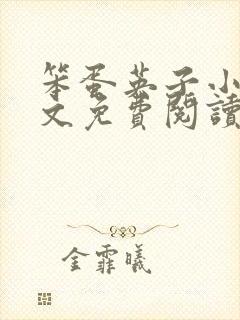 笨蛋英子小
文免費閱讀
金霏曦